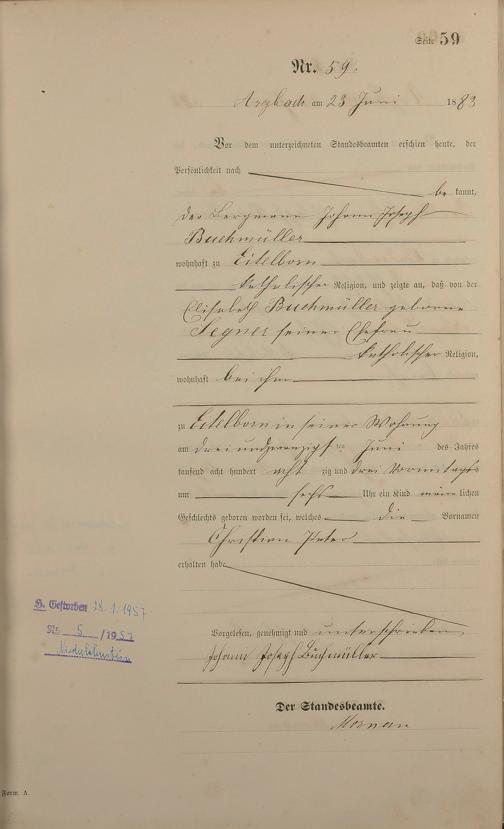 Seite 59
Nr. 59.
Arzbach am 23 Juni 1883
Vor dem unterzeichneten Standesbeamten erschien heute, der
Persönlichkeit nach
be kannt,
der Bergmann Johann Joseph
Buchmüller
wohnhaft zu Eitelborn
katholischer Religion, und zeigte an, daß von der
Elisabeth Buchmüller geborene
Segner seiner Ehefrau
katholischer Religion,
wohnhaft bei ihm
zu Eitelborn in seiner Wohnung
am dreiundzwanzigsten Juni des Jahres
tausend acht hundert acht zig und drei Vormittags
um sechs Uhr ein Kind männlichen
Geschlechts geboren worden sei, welches die Vornamen
Christian Peter
erhalten habe
Vorgelesen, genehmigt und unterschrieben
Johann Joseph Buchmüller
Der Standesbeamte.
H. Gestorben 28.1.1957
Nr. 5 /1957
Niederlahnstein
Form. A.